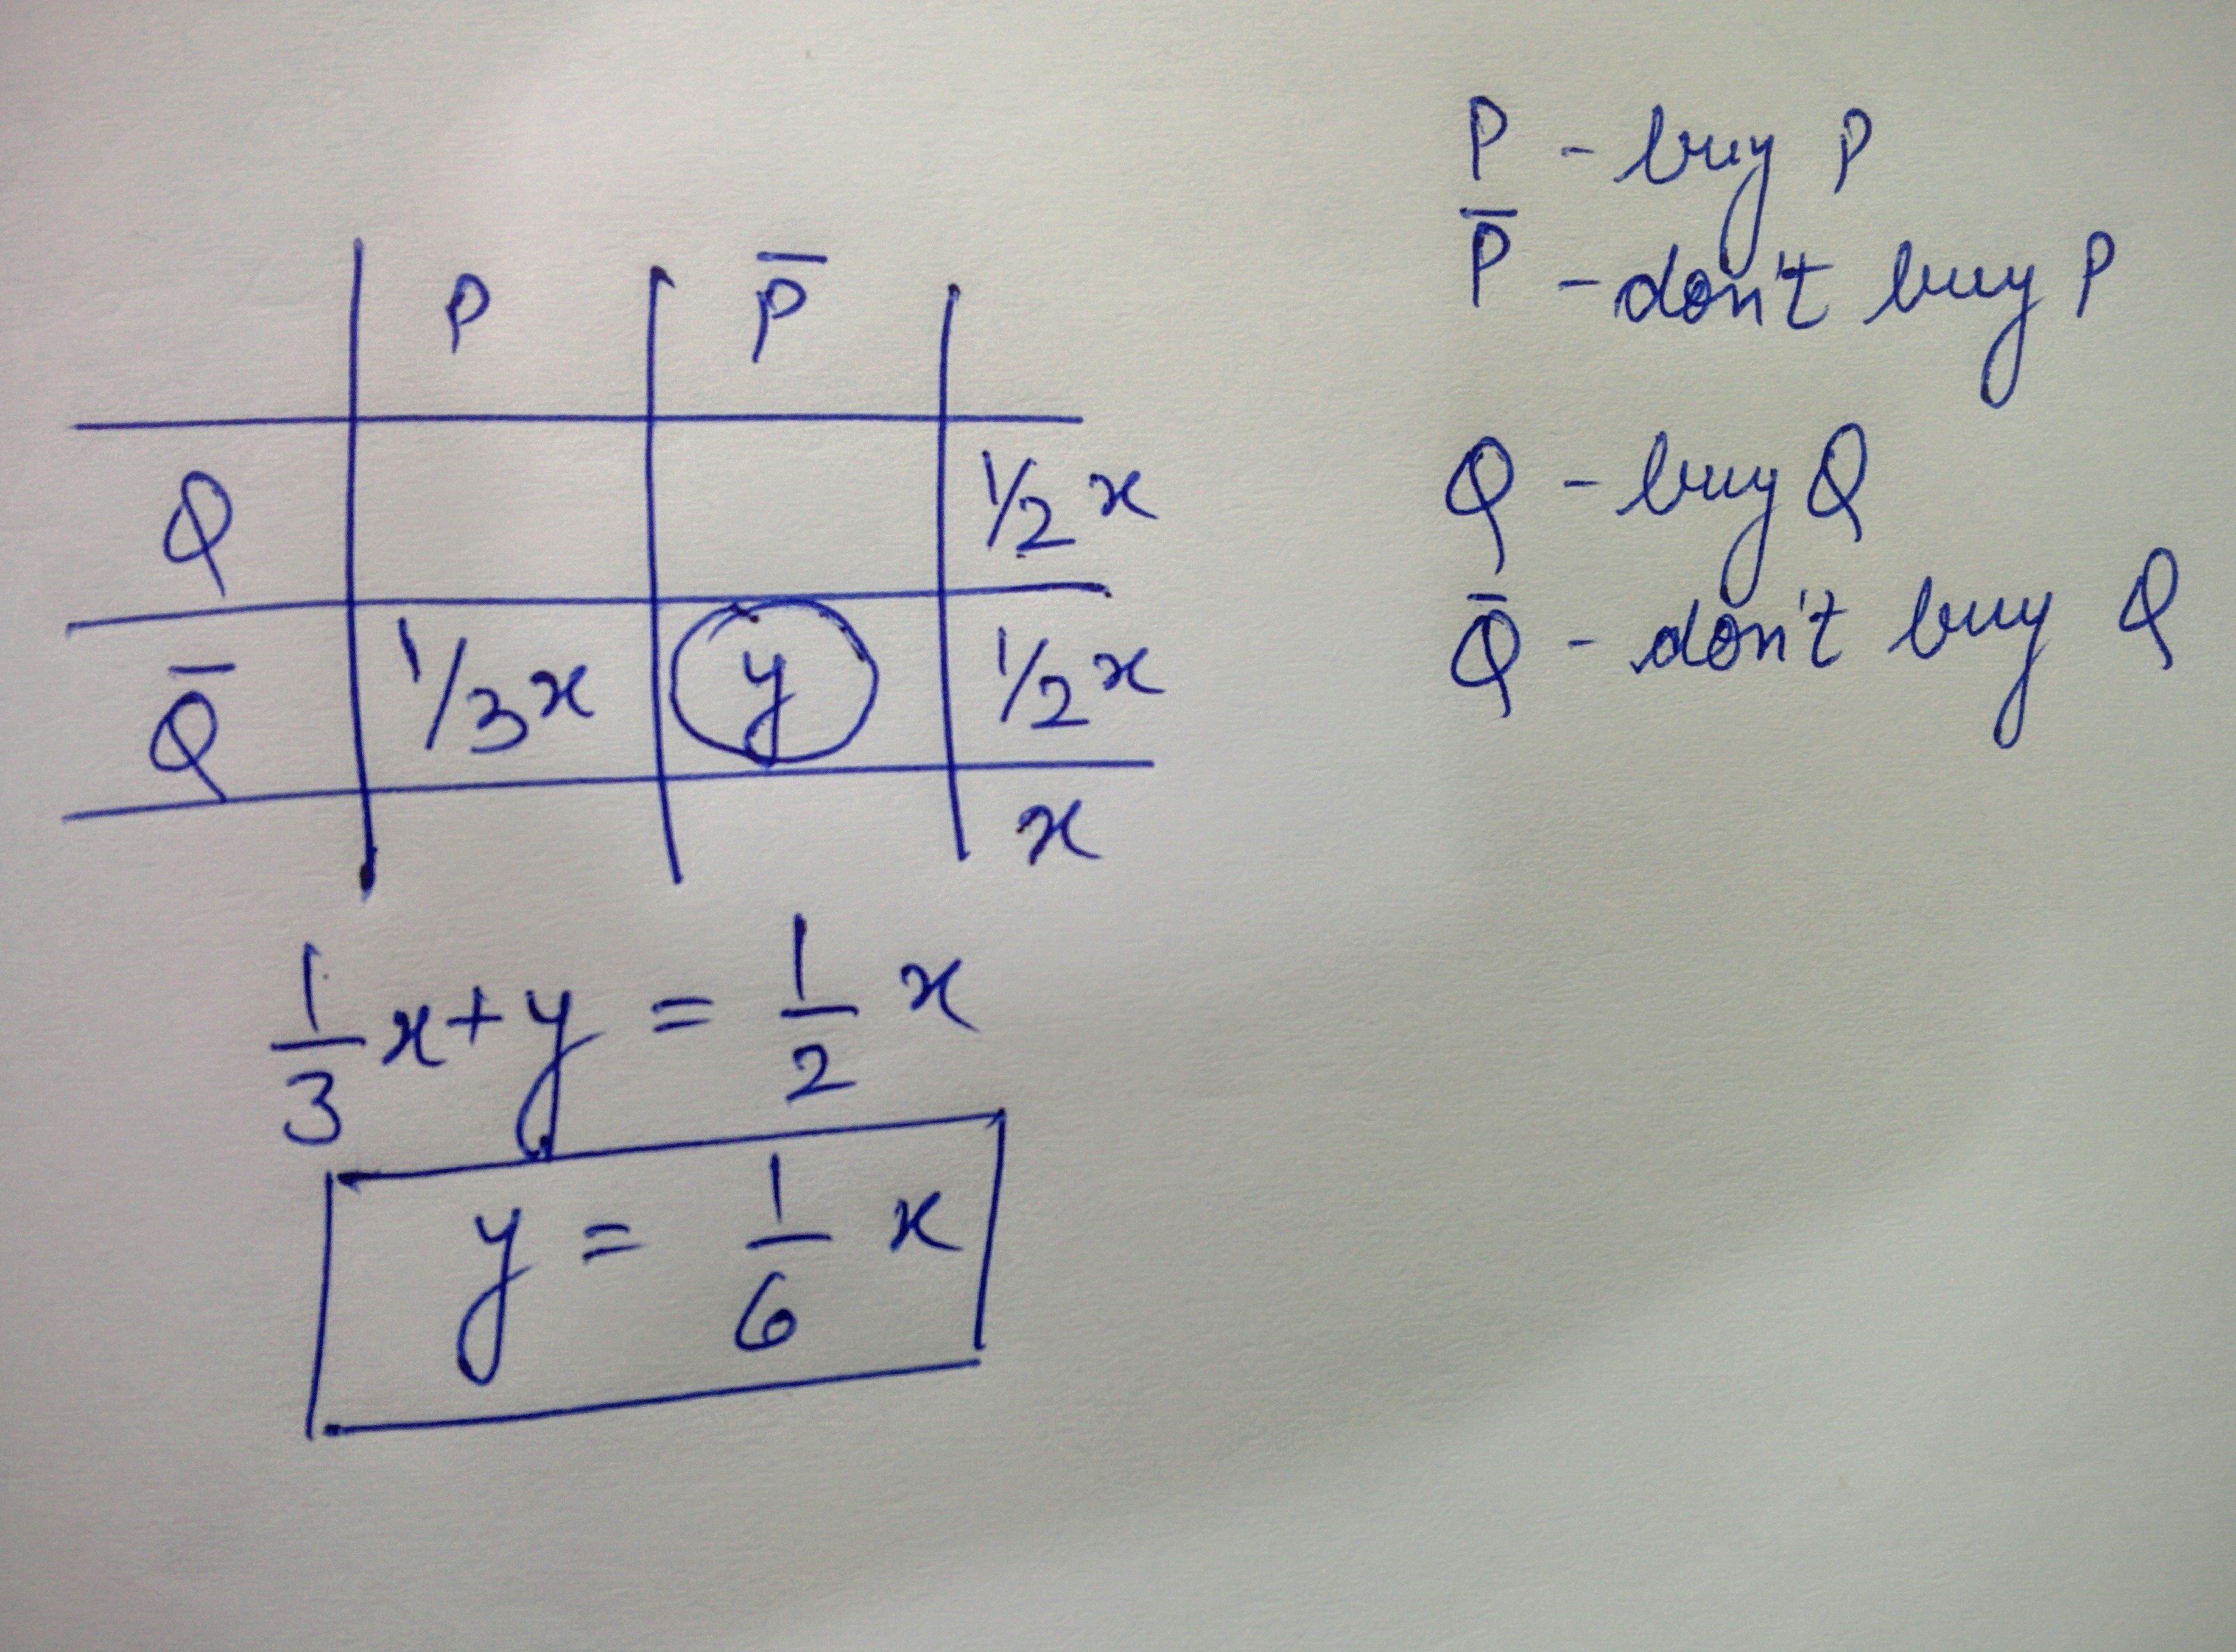 P P̄
Q ½ x
Q̄ 1/3 x y ½ x
x
1/3 x + y = 1/2 x
y = 1/6 x
P - buy P
P̄ - don't buy P
Q - buy Q
Q̄ - don't buy Q